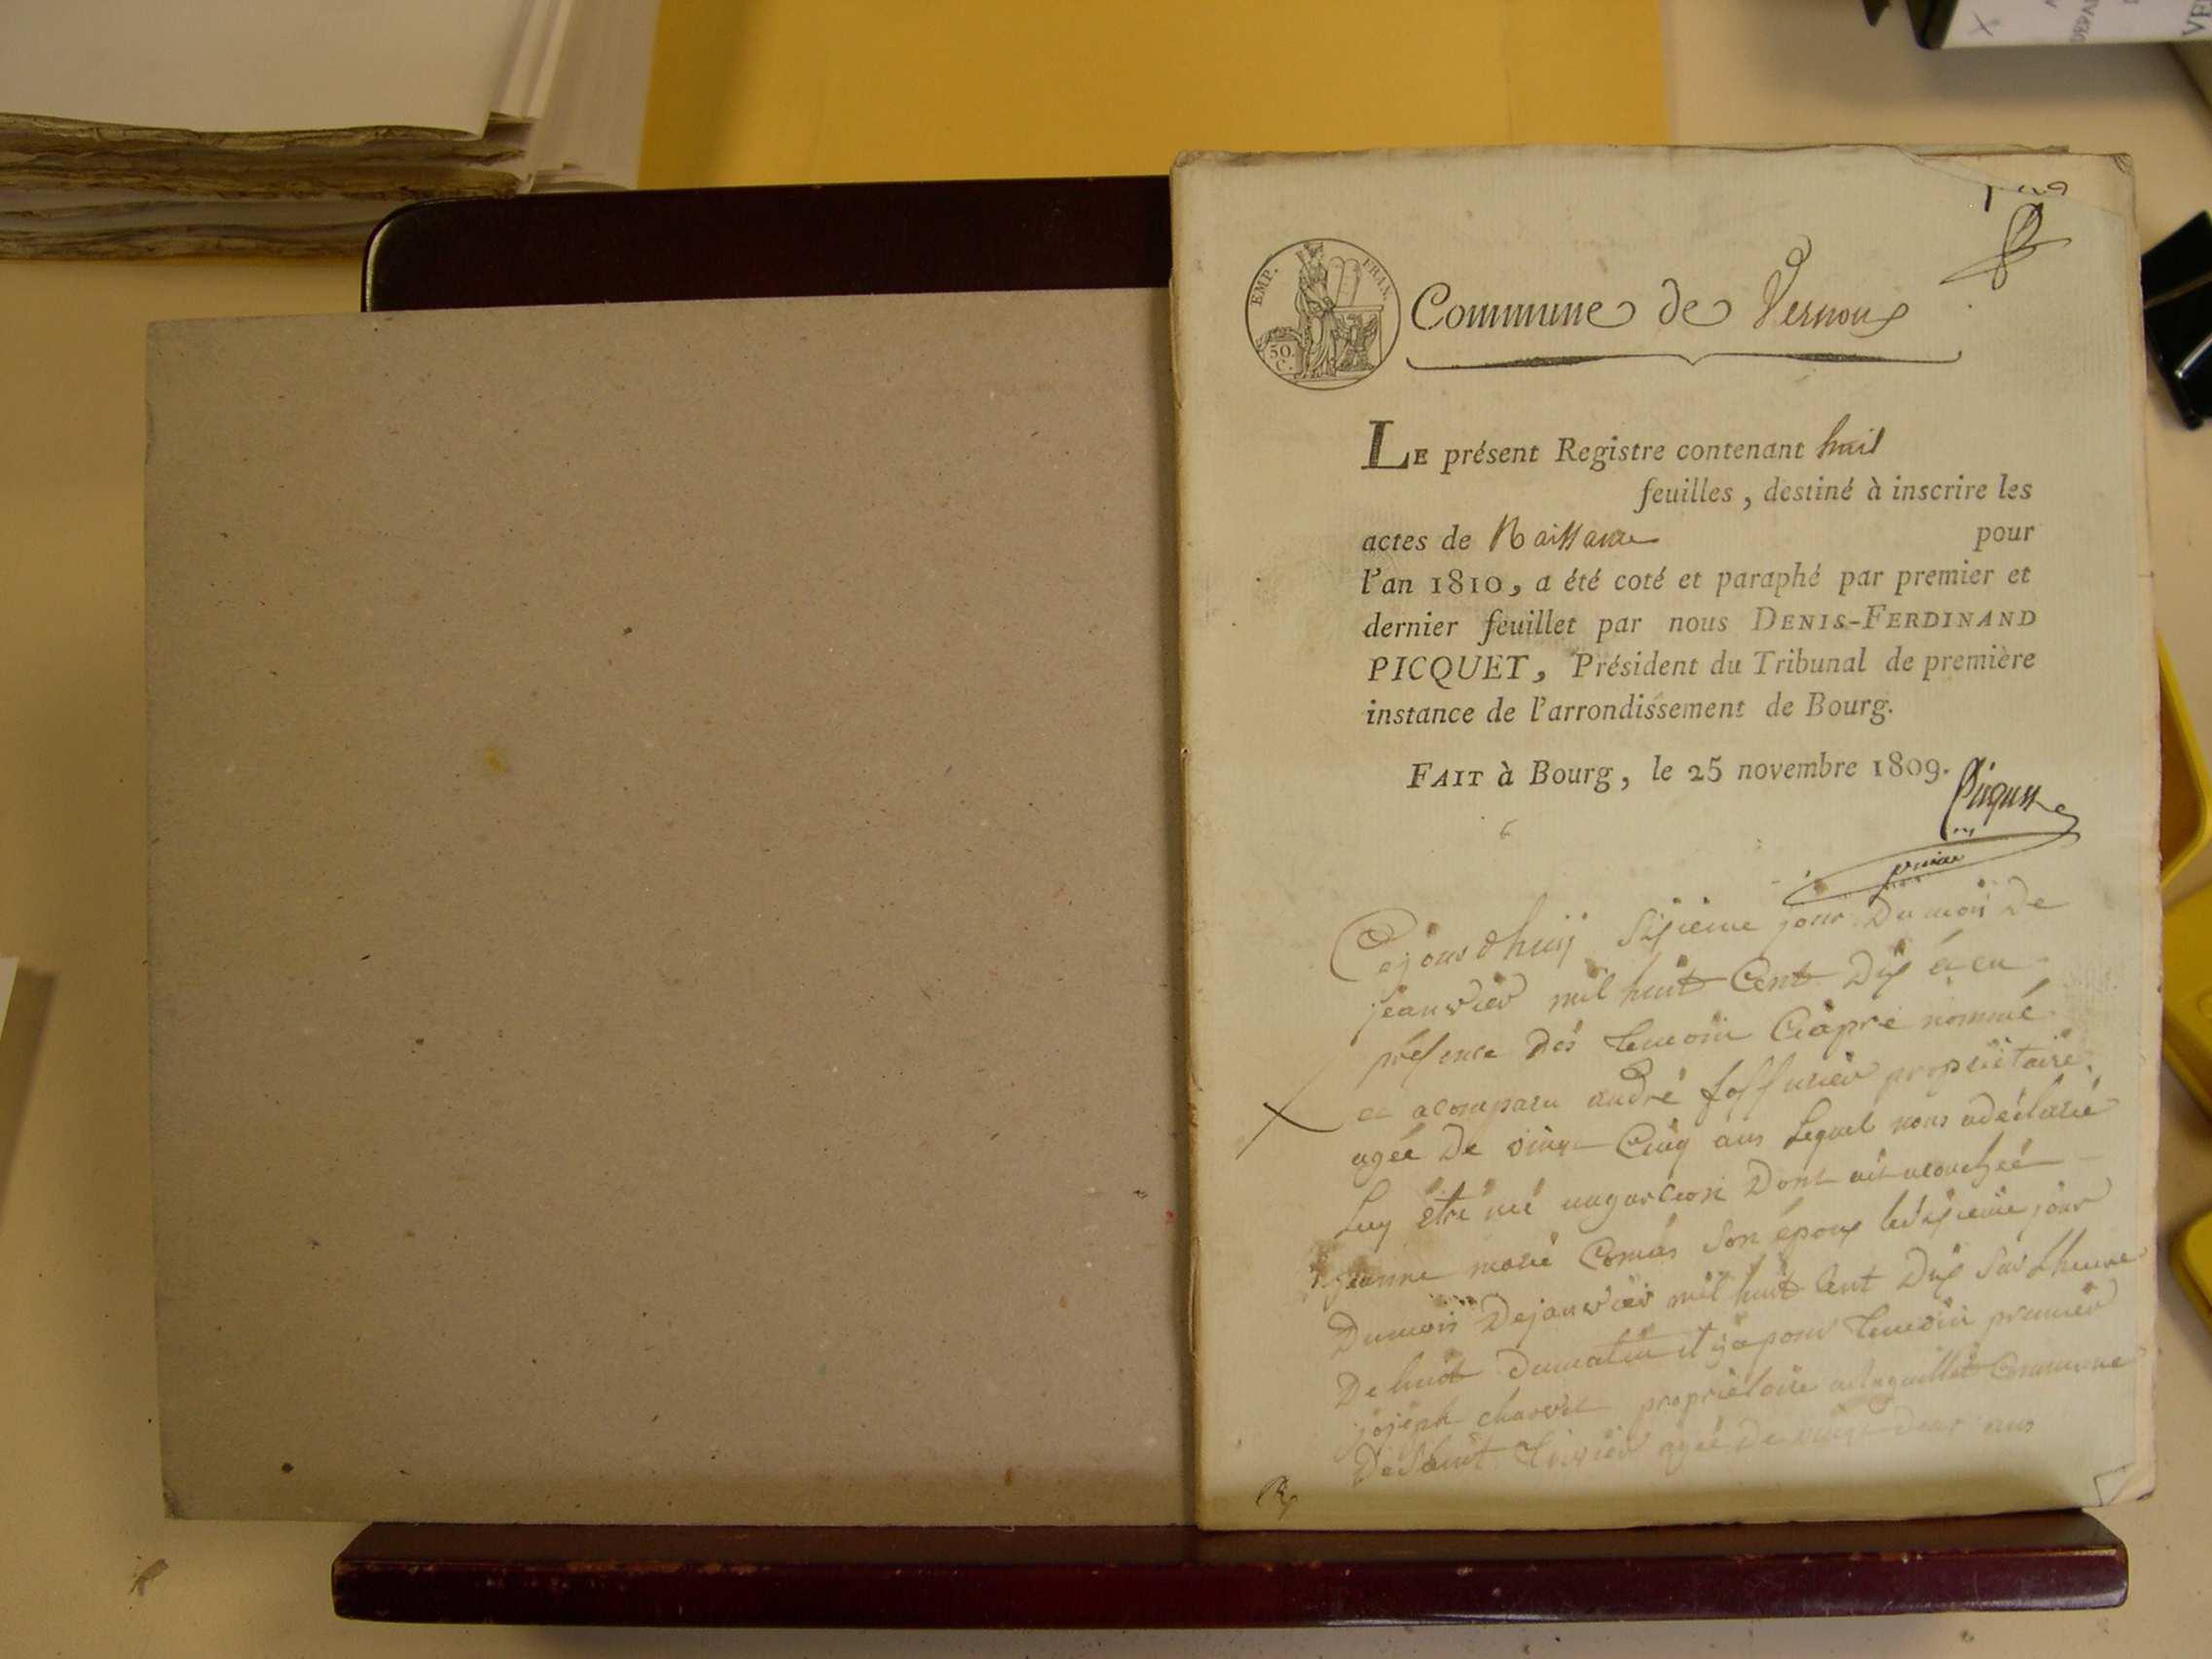 EMP. FRAN.
50.
C.
Commune de Vernoux
LE présent Registre contenant huit
feuilles, destiné à inscrire les
actes de Naissance pour
l'an 1810, a été coté et paraphé par premier et
dernier feuillet par nous DENIS-FERDINAND
PICQUET, Président du Tribunal de première
instance de l'arrondissement de Bourg.
FAIT à Bourg, le 25 novembre 1809.
Picquet
Cejourdhuij Sixieme jour Du mois De
jeanvier mil huit Cent Dix et en
présence Dés temoin Ciàpré nommé
a comparu andré propriétaire
agée De vingt Cinq ans Lequel nous adéclaré
Luy être né ungarcion Dont ait acouchéé
jeanne marie Comas Son époux lesixieme jour
Dumois Dejanvier mil huit Cent Dix Sur Lheure
De huit Dumatin it ya pour temoin premier
joseph charvet propriétaire Commune
De Saint Trivier agée De vingt deux ans